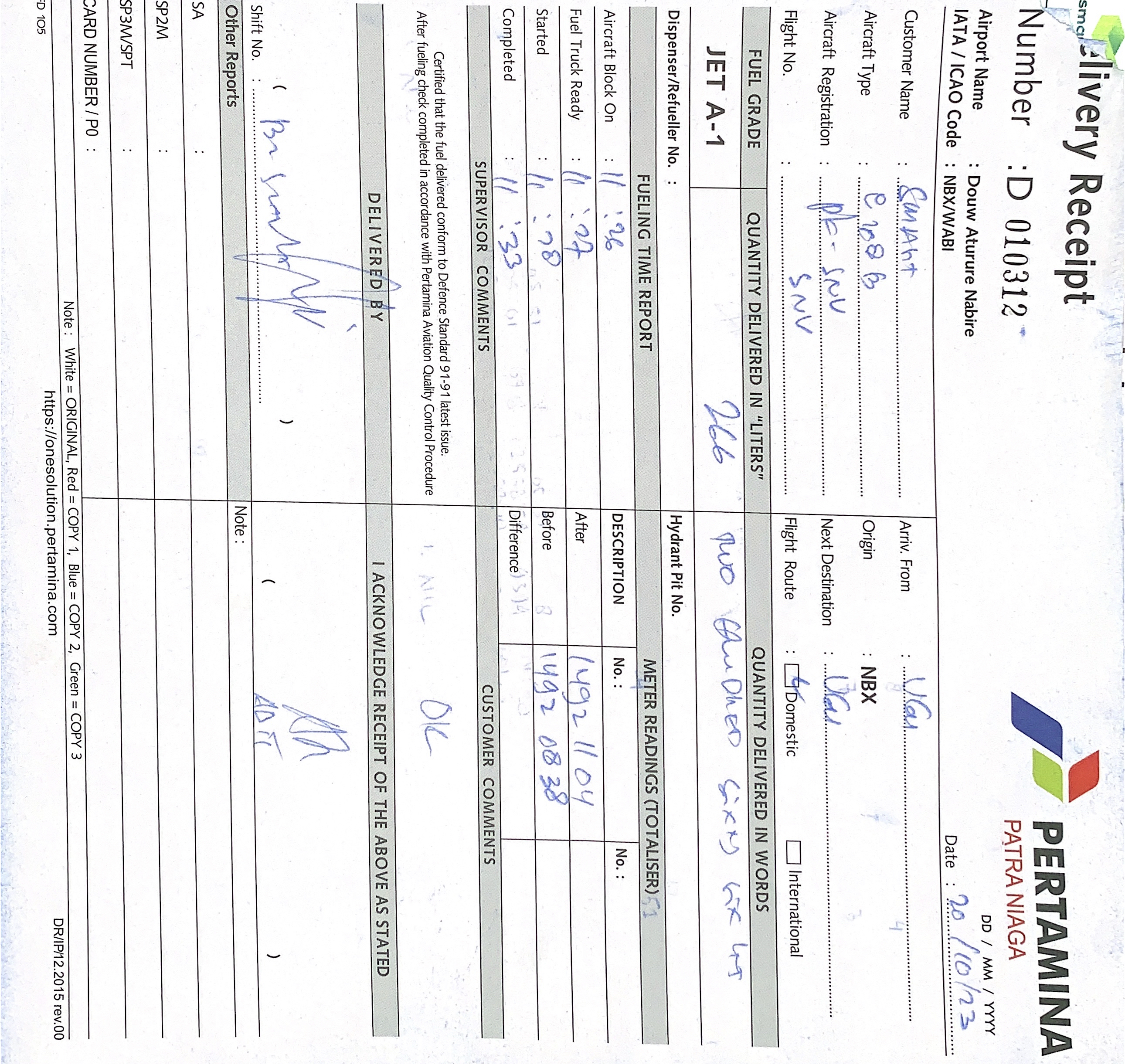 smar
elivery Receipt
PERTAMINA
PATRA NIAGA
Number : D 010312
DD / MM / YYYY
Airport Name : Douw Aturure Nabire
IATA / ICAO Code : NBX/WABI
Date : 20/10/23
Customer Name : SMART
Arriv. From :
Aircraft Type : C 208 B
Origin : NBX
Aircraft Registration : PK - SNV
Next Destination :
Flight No. : SNV
Flight Route : Domestic International
FUEL GRADE QUANTITY DELIVERED IN "LITERS" QUANTITY DELIVERED IN WORDS
JET A-1 266 TWO HUNDRED SIXTY SIX LTS
Dispenser/Refueller No. : Hydrant Pit No.
FUELING TIME REPORT METER READINGS (TOTALISER)
Aircraft Block On : 11:26 DESCRIPTION No. : No. :
Fuel Truck Ready : 11:27 After 1492 1104
Started : 11:28 Before 1492 0838
Completed : 11:33 Difference
SUPERVISOR COMMENTS CUSTOMER COMMENTS
Certified that the fuel delivered conform to Defence Standard 91-91 latest issue.
After fueling check completed in accordance with Pertamina Aviation Quality Control Procedure
OK
DELIVERED BY I ACKNOWLEDGE RECEIPT OF THE ABOVE AS STATED
Shift No. : ( ) ( )
Other Reports Note :
SA :
SP2M :
SP3M/SPT :
CARD NUMBER / P0 :
Note : White = ORIGINAL, Red = COPY 1, Blue = COPY 2, Green = COPY 3
https://onesolution.pertamina.com
FD 105
DR/IP/12.2015 rev.00